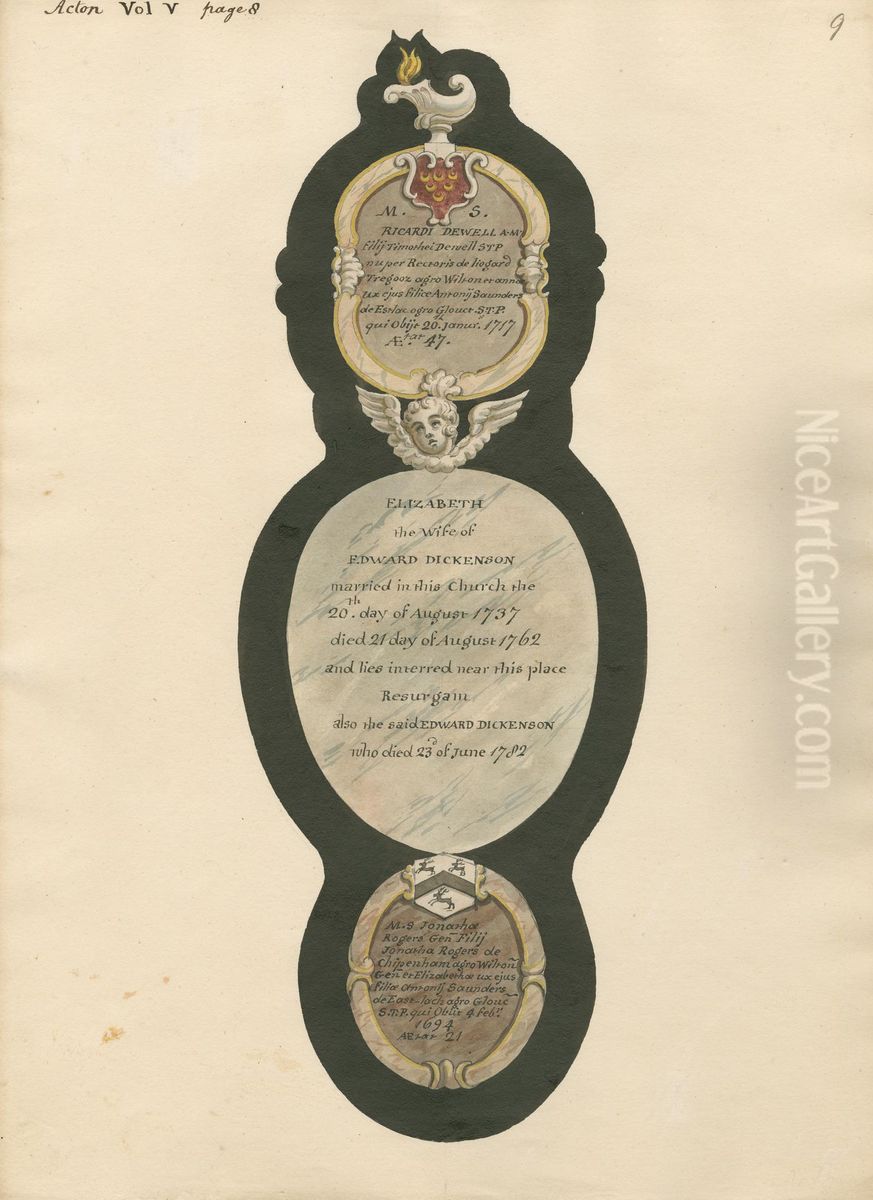 Acton Vol V page 8
9
M. S.
RICARDI DEWELL A·M
filij Timothei Dewell S·T·P
nuper Rectoris de liogard
Tregooz agro Wilton et anna
ux ejus filiæ Antonij Saunders
de Estlac ogro Gloucr. S.T.P.
qui Obijt 20. Janur. 1717
Ætat. 47.
ELIZABETH
the Wife of
EDWARD DICKENSON
married in this Church the
20th. day of August 1737
died 21 day of August 1762
and lies interred near this place
Resurgam
also the said EDWARD DICKENSON
who died 23d of June 1782
M.S Jonathæ
Rogers Gen Filij
Jonatha Rogers de
Chipenham agro Wilton
Gen et Elizabethæ ux ejus
filiæ Antonij Saunders
de East-lach agro Glouc
S.T.P. qui Obiit 4 febr.
1694
AEtat 21
NiceArtGallery.com